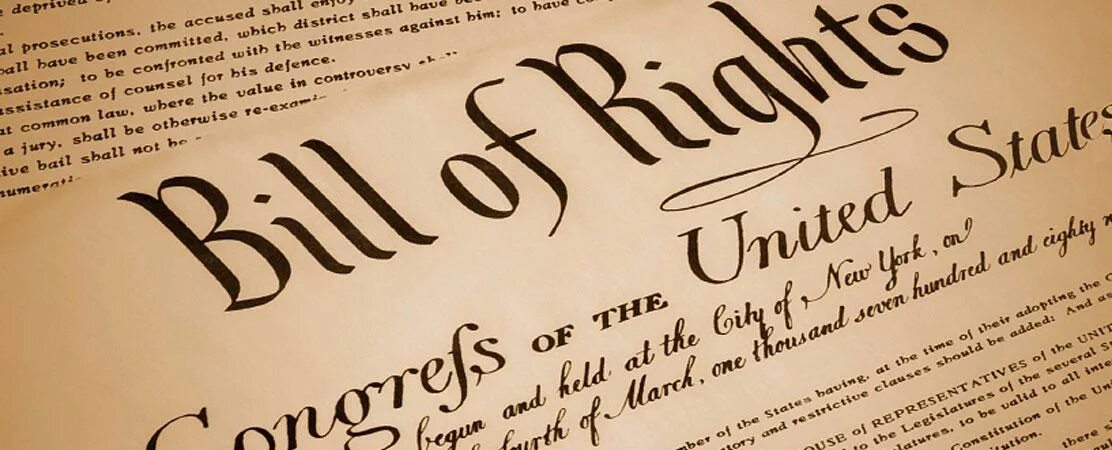 deprived
al prosecutions, the accused shall enjoy
all have been committed, which district shall have
sation; to be confronted with the witnesses against him; to have
assistance of counsel for his defence.
at common law, where the value in controversy
a jury, shall be otherwise re-exami
ive bail shall not be
numerati
Bill of Rights
Congreſs OF THE United States
begun and held at the City of New York, on
fourth of March, one thousand seven hundred and eighty
mber of the States having, at the time of their adopting the
tory and restrictive clauses should be added: And
OUSE of REPRESENTATIVES of the UNIT
to the Legislatures of the several
latures, to be valid to all
Constitution of the
itution.
there